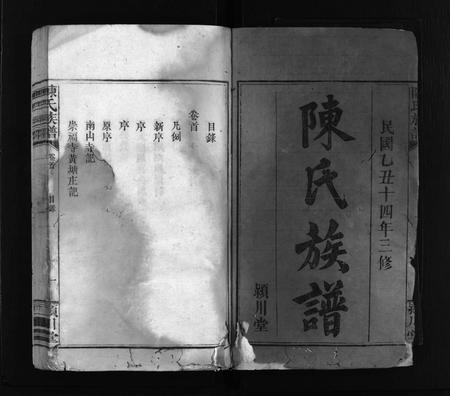 民國乙丑十四年三修
陳氏族譜
潁川堂
目錄
卷首
凡例
新序
序
序
原序
南山寺記
崇福寺黃塘庄記
陳氏族譜
卷首
目錄
一
潁川堂